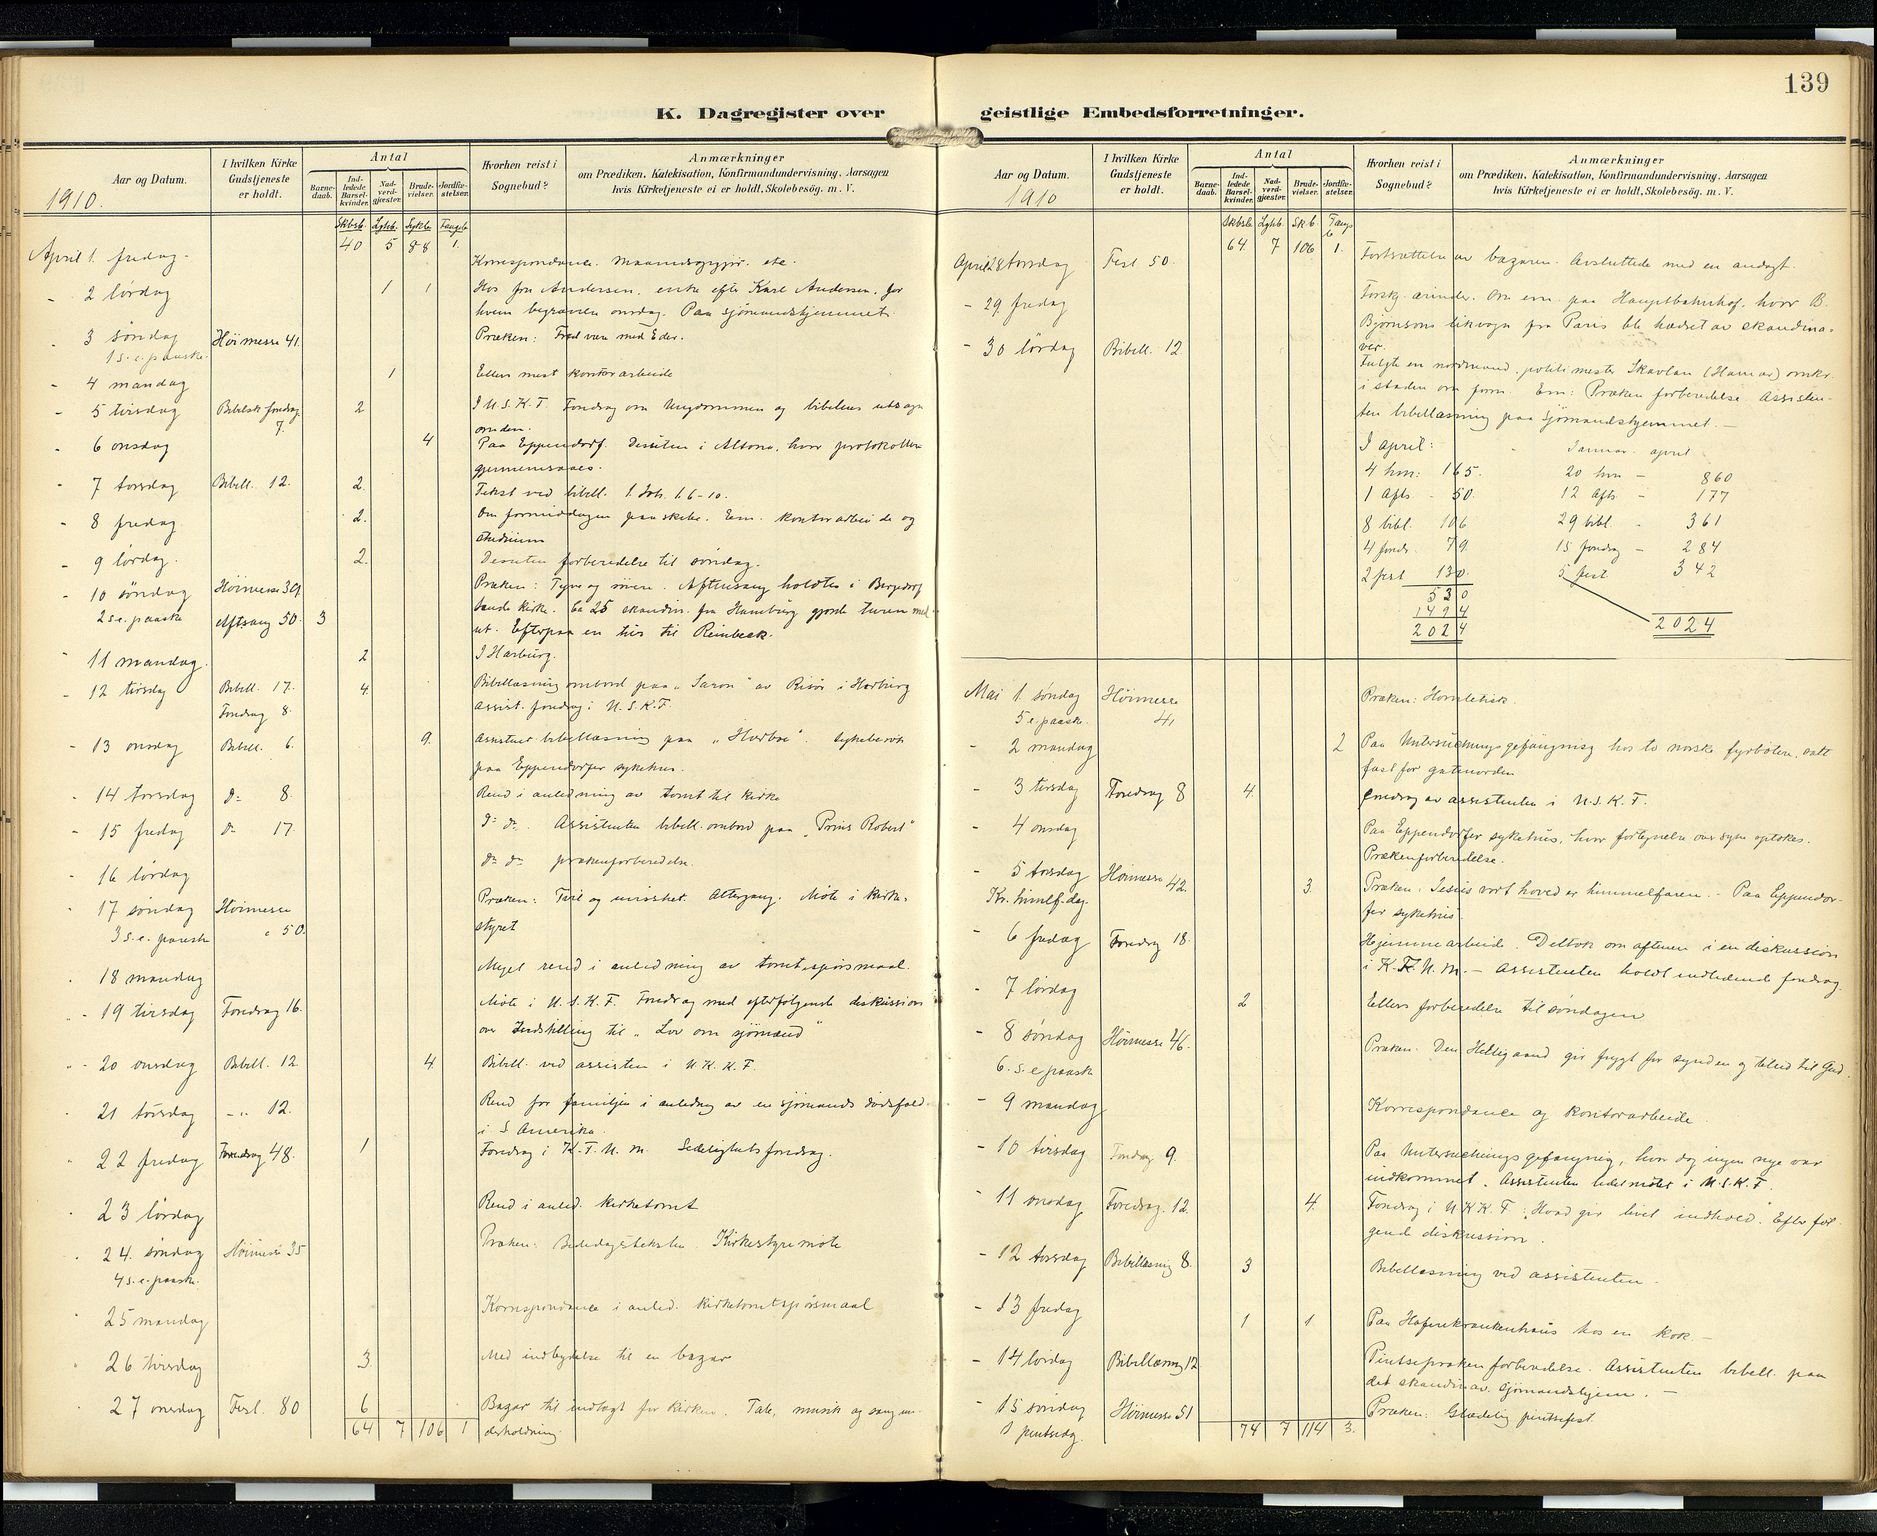 139
K. Dagregister over geistlige Embedsforretninger.
Aar og Datum.
I hvilken Kirke Gudstjeneste er holdt.
Antal
Barnedaab.
Indledede Barselkvinder.
Nadverdgjæster.
Brudevielser.
Jordfæstelser.
Hvorhen reist i Sognebud?
Anmærkninger
om Prædiken, Katekisation, Konfirmandundervisning, Aarsagen
hvis Kirketjeneste ei er holdt, Skolebesøg. m. V.
1910.
Skbsb. Lghb. Sykb. Fangeb.
April 1. fredag. 40 5 88 1. Korrespondance. maanedsopgjør. etc.
- 2 lørdag 1 1 Hos fru Andersen, enke efter Karl Andersen, for
hvem begravelse onsdag. Paa sjømandshjemmet.
- 3 søndag Høimesse 41. Præken: Fred være med Eder.
1 s. e. paaske.
- 4 mandag 1 Ellers mest kontorarbeide
- 5 tirsdag Bibelsk foredrag 7. 2 I U.S.K.F. Foredrag om Ungdommen og bibelens utsagn
om den.
- 6 onsdag 4 Paa Eppendorf. Desuten i Altona, hvor protokollen
gjennemsaaes.
- 7 torsdag Bibell. 12. 2. Tekst ved bibell. 1. Joh. 1.6-10.
- 8 fredag 2. Om formiddagen paa skibe. Em. kontorarbeide og
studium
- 9 lørdag. 2. Desuten forberedelse til søndag.
- 10 søndag Høimesse 39. Præken: Tyve og mere. Aftensang holdtes i Bergedorf
2 s. e. paaske Aftsang 50. 3 lands kirke. ca 25 skandin. fra Hamburg gjorde turen med
ut. Efterpaa en tur til Reinbeck.
- 11 mandag. 2 I Harburg.
- 12 tirsdag Bibell. 17. 4. Bibellæsning ombord paa "Saron" av Risør i Harburg
Foredrag 8. Assist. foredrag i U.S.K.F.
- 13 onsdag Bibell. 6. 9. Assistent bibellæsning paa "Herbæ". Sykebesøk
paa Eppendorfer sykehus.
- 14 torsdag do 8. Rend i anledning av tomt til kirke
- 15 fredag do 17. do do. Assistenten bibell. ombord paa "Prins Robert"
- 16 lørdag do do prækenforberedelse.
- 17 søndag Høimesse 50. Præken: Altergang. Møte i kirke-
3 s. e. paaske styret
- 18 mandag Meget rend i anledning av tomtespørsmaal.
- 19 tirsdag Foredrag 16. Møte i U.S.K.F. Foredrag med efterfølgende diskussion
over Indstilling til "Lov om sjømænd"
- 20 onsdag Bibell. 12 4. Bibell. ved assisten i U.K.K.F.
21 torsdag - " - 12. Rend for familjen i anledng av en sjømands dødsfald
i S. Amerika.
22 fredag Foredrag 48. 1 Foredrag i K.F.U.M. Sedelighetsforedrag.
23 lørdag Rend i anled. kirketomt
24. søndag Høimesse 35 Præken: Bededagsteksten Kirkestyremøte
4 s. e. paaske.
25 mandag Korrespondance i anled. kirketomtspørsmaal
26 tirsdag 3. Med indbydelse til en bazar
27 onsdag Fest. 80 6 Bazar til indtægt for kirken. Tale, musik og sang un-
64 7 106 1 derholdning.
Aar og Datum.
I hvilken Kirke Gudstjeneste er holdt.
Antal
Barnedaab.
Indledede Barselkvinder.
Nadverdgjæster.
Brudevielser.
Jordfæstelser.
Hvorhen reist i Sognebud?
Anmærkninger
om Prædiken, Katekisation, Konfirmandundervisning, Aarsagen
hvis Kirketjeneste ei er holdt, Skolebesøg. m. V.
1910
Skbsb. Lghb. Sk b. Fangb
April 28 torsdag Fest 50. 64. 7 106 1. Fortsættelse av bazaren. Avsluttede med en andagt.
- 29 fredag Forskj. ærinder. Om em. paa Hauptbahnhof, hvor B.
Bjørnsons likvogn fra Paris ble hædret av skandina-
ver.
- 30 lørdag Bibell. 12. Fulgte en nordmand, politimester Skavlan (Hamar) omkr.
i staden om form. Em: Prækenforberedelse Assisten-
ten bibellæsning paa sjømandshjemmet. -
I april: Januar - april
4 hm: 165. 20 hm - 860
1 Afts - 50. 12 Afts - 177
8 bibl. 106 29 bibl. - 361
4 foredr. 79. 15 foredrag - 284
2 fest 130. 5 fest 342
530
1494
2024 2024
Mai 1. søndag Høimesse 41 Præken: Homiletisk.
5 e. paaske.
- 2 mandag 2 Paa Untersuchungsgefängnisz hos to norske fyrbøtere, satt
fast for gatuorden
- 3 tirsdag Foredrag 8 4. Foredrag av assistenten i U.S.K.F.
- 4 onsdag Paa Eppendorfer sykehus, hvor fortegnelse over syke optokes.
Prækenforberedelse.
- 5 torsdag Høimesse 42. 3. Præken: Jesus vort hoved er himmelfaren. - Paa Eppendor-
Kr. himlf. dag. fer sykehus.
- 6 fredag Foredrag 18. Hjemmearbeide. Deltok om aftenen i en diskussion
i K.F.U.M. - Assistenten holdt indledende foredrag.
- 7 lørdag 2 Ellers forberedelse til søndagen
- 8 søndag Høimesse 46. Præken. Den Helligaand gir frygt for synden og tillid til Gud.
6. s. e paaske
- 9 mandag Korrespondance og kontorarbeide.
- 10 tirsdag Foredrag 9. Paa Untersuchungsgefangnig, hvor dog ingen nye var
indkommet. Assistenten ledet møtet i U.S.K.F.
- 11 onsdag Foredrag. 12. 4. Foredrag i U.K.K.F. "Hvad gir livet indhold". Efterføl-
gende diskussion.
- 12 torsdag Bibellæsning 8. 3 Bibellæsning ved assistenten.
- 13 fredag 1 1 Paa Hafenkrankenhaus hos en kok. -
- 14 lørdag Bibellæsning 12 Pintseprækenforberedelse. Assistenten bibell. paa
det skandinav. sjømandshjem. -
- 15 søndag Høimesse 51 Præken: Glædelig pintsefest.
1 pintsedg. 74 7 114 3.